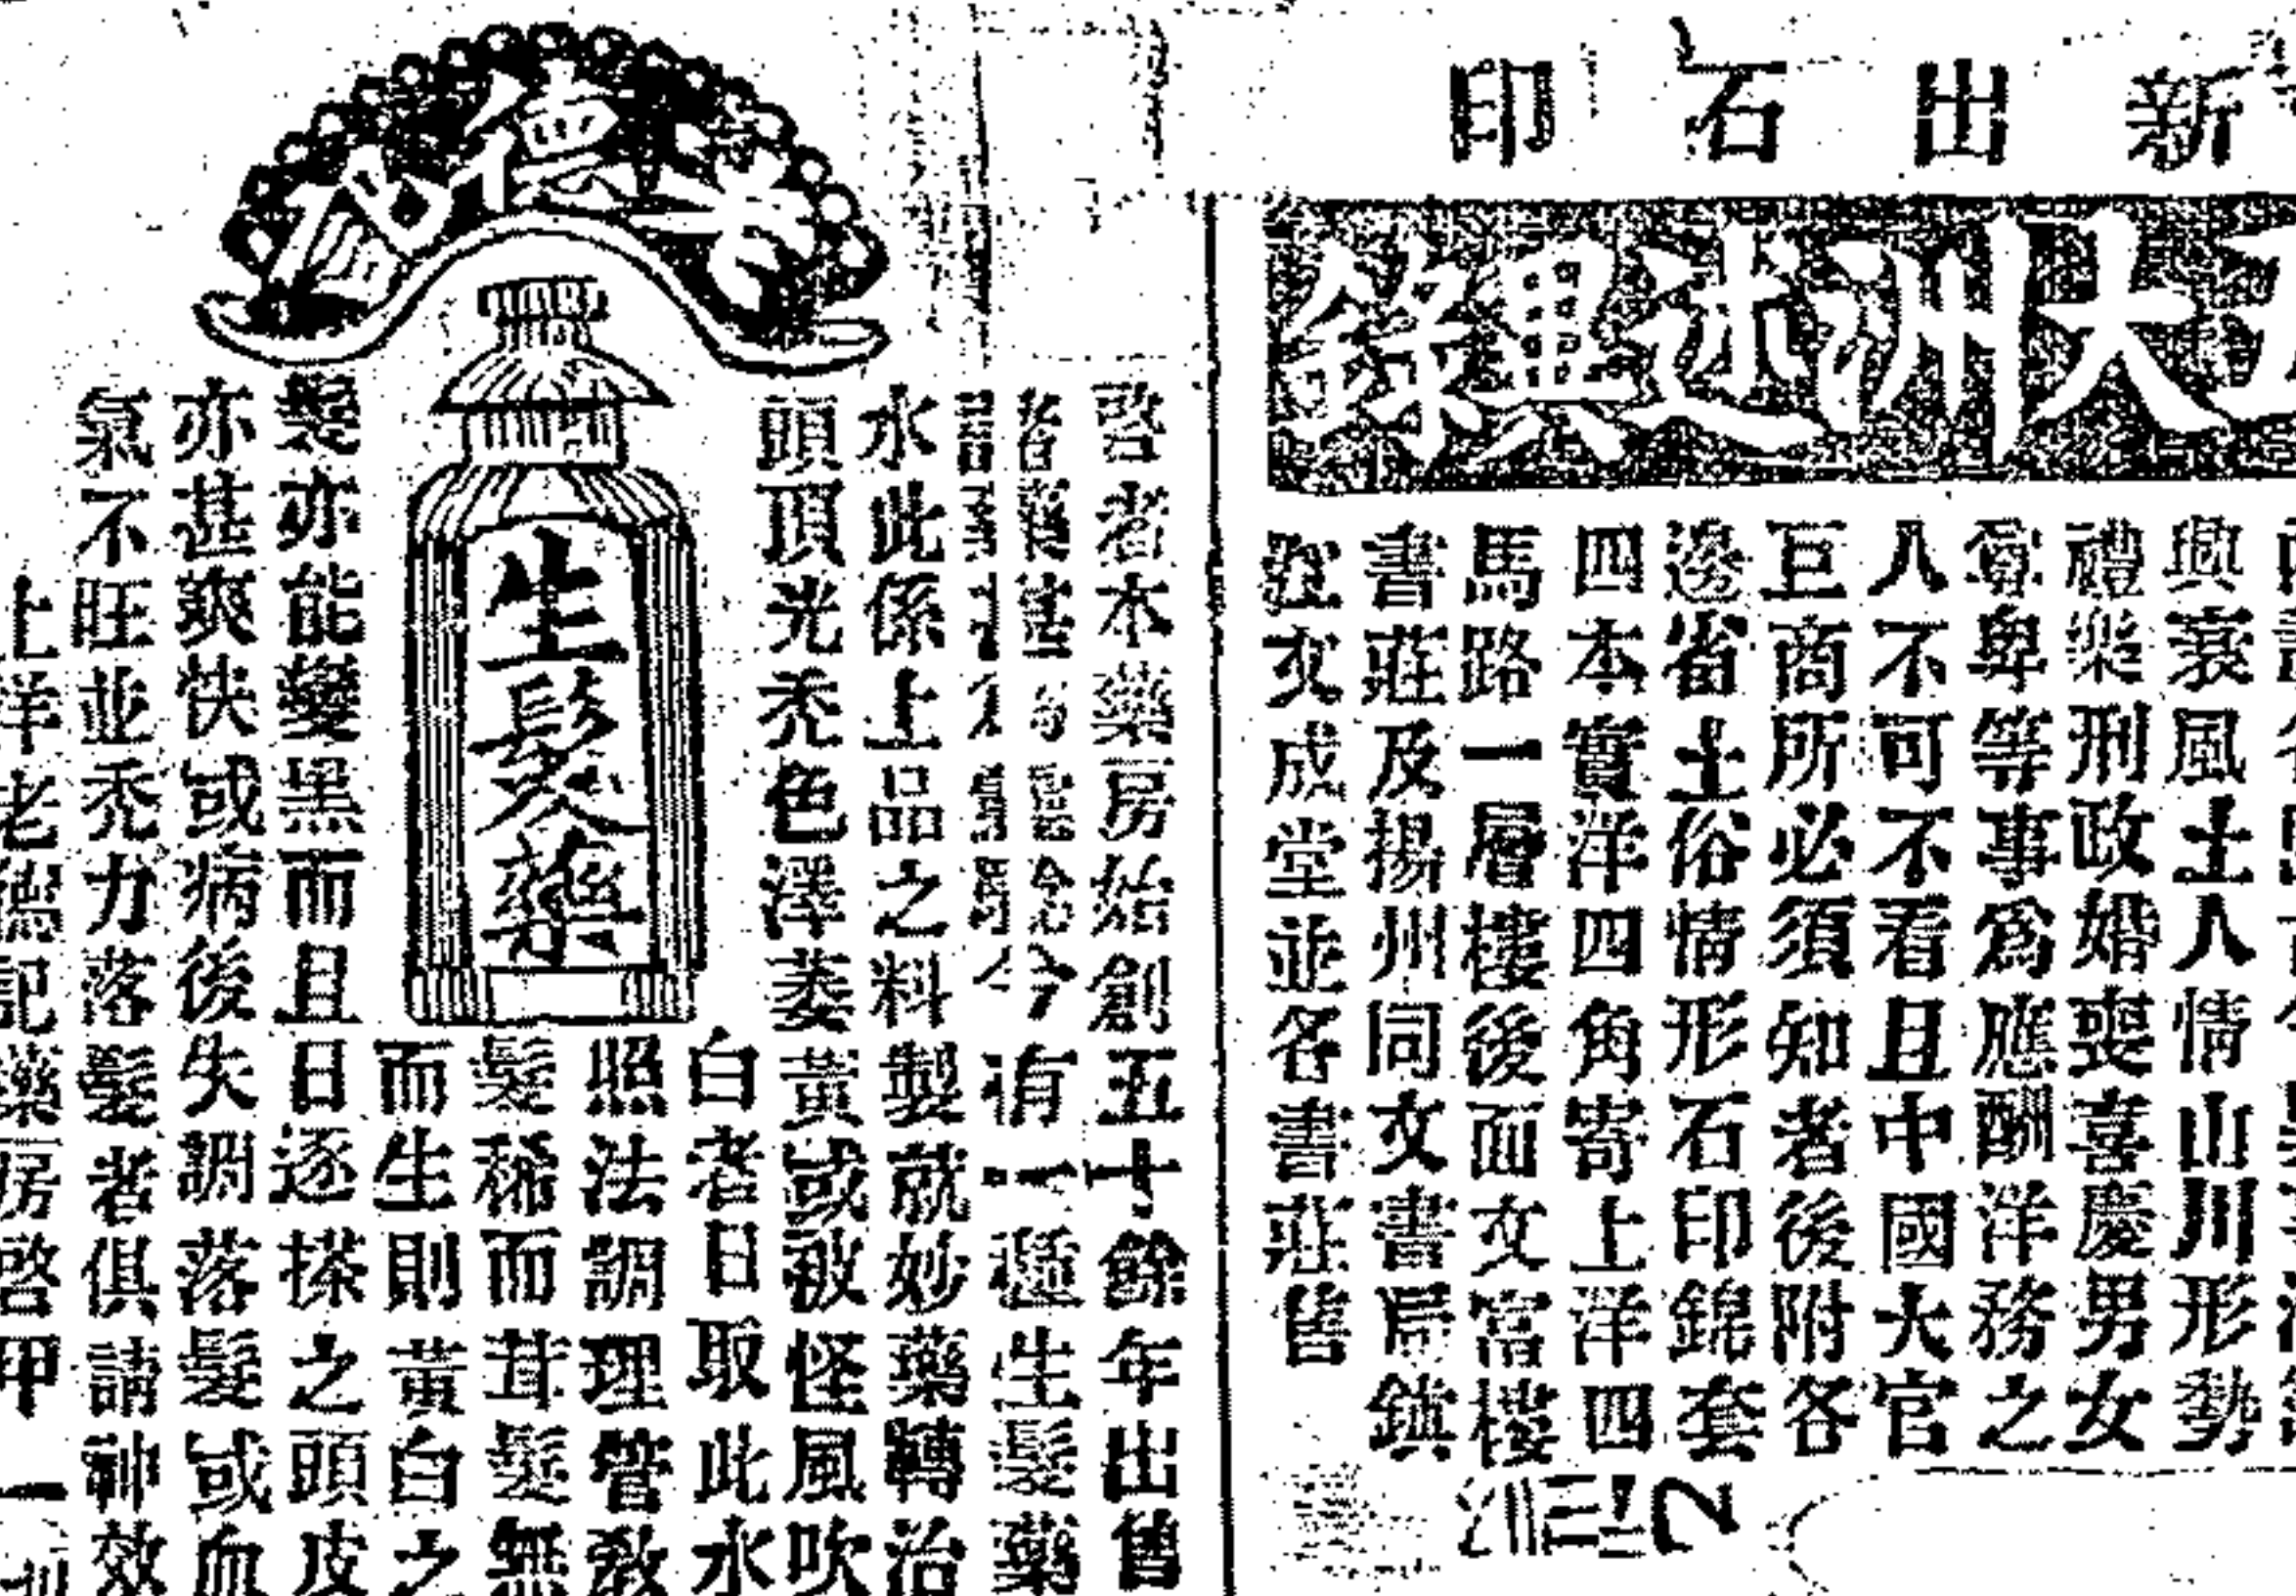 新出石印
大洲述異錄
興衰風土人情山川形勢
禮樂刑政婚喪喜慶男女
尊卑等事爲應酬洋務之
人不可不看且中國大官
巨商所必須知者後附各
邊省土俗情形石印錦套
四本實洋四角寄上洋四
馬路一層樓後面文富樓
書莊及揚州同文書局鎮
江文成堂並各書莊售
老德記
生髮藥
啓者本藥房始創五十餘年出售
今有一種生髮藥
水此係上品之料製就妙藥轉治
頭頂光禿色澤萎黃或被怪風吹
白者日取此水
照法調理管敎
髮稀而茸髮無
而生則黃白之
髮亦能變黑而且日逐搽之頭皮
亦甚爽快或病後失調落髮或血
氣不旺並禿力落髮者俱請神效
上洋老德記藥房啓甲一